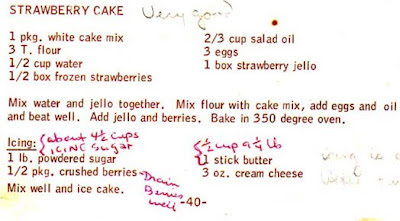 STRAWBERRY CAKE Very good
1 pkg. white cake mix 2/3 cup salad oil
3 T. flour 3 eggs
1/2 cup water 1 box strawberry jello
1/2 box frozen strawberries
Mix water and jello together. Mix flour with cake mix, add eggs and oil
and beat well. Add jello and berries. Bake in 350 degree oven.
Icing: {about 4½ cups {½ cup or ¼ lb
ICING Sugar
1 lb. powdered sugar 1 stick butter
1/2 pkg. crushed berries 3 oz. cream cheese
Drain
Mix well and ice cake. Berries
well -40-